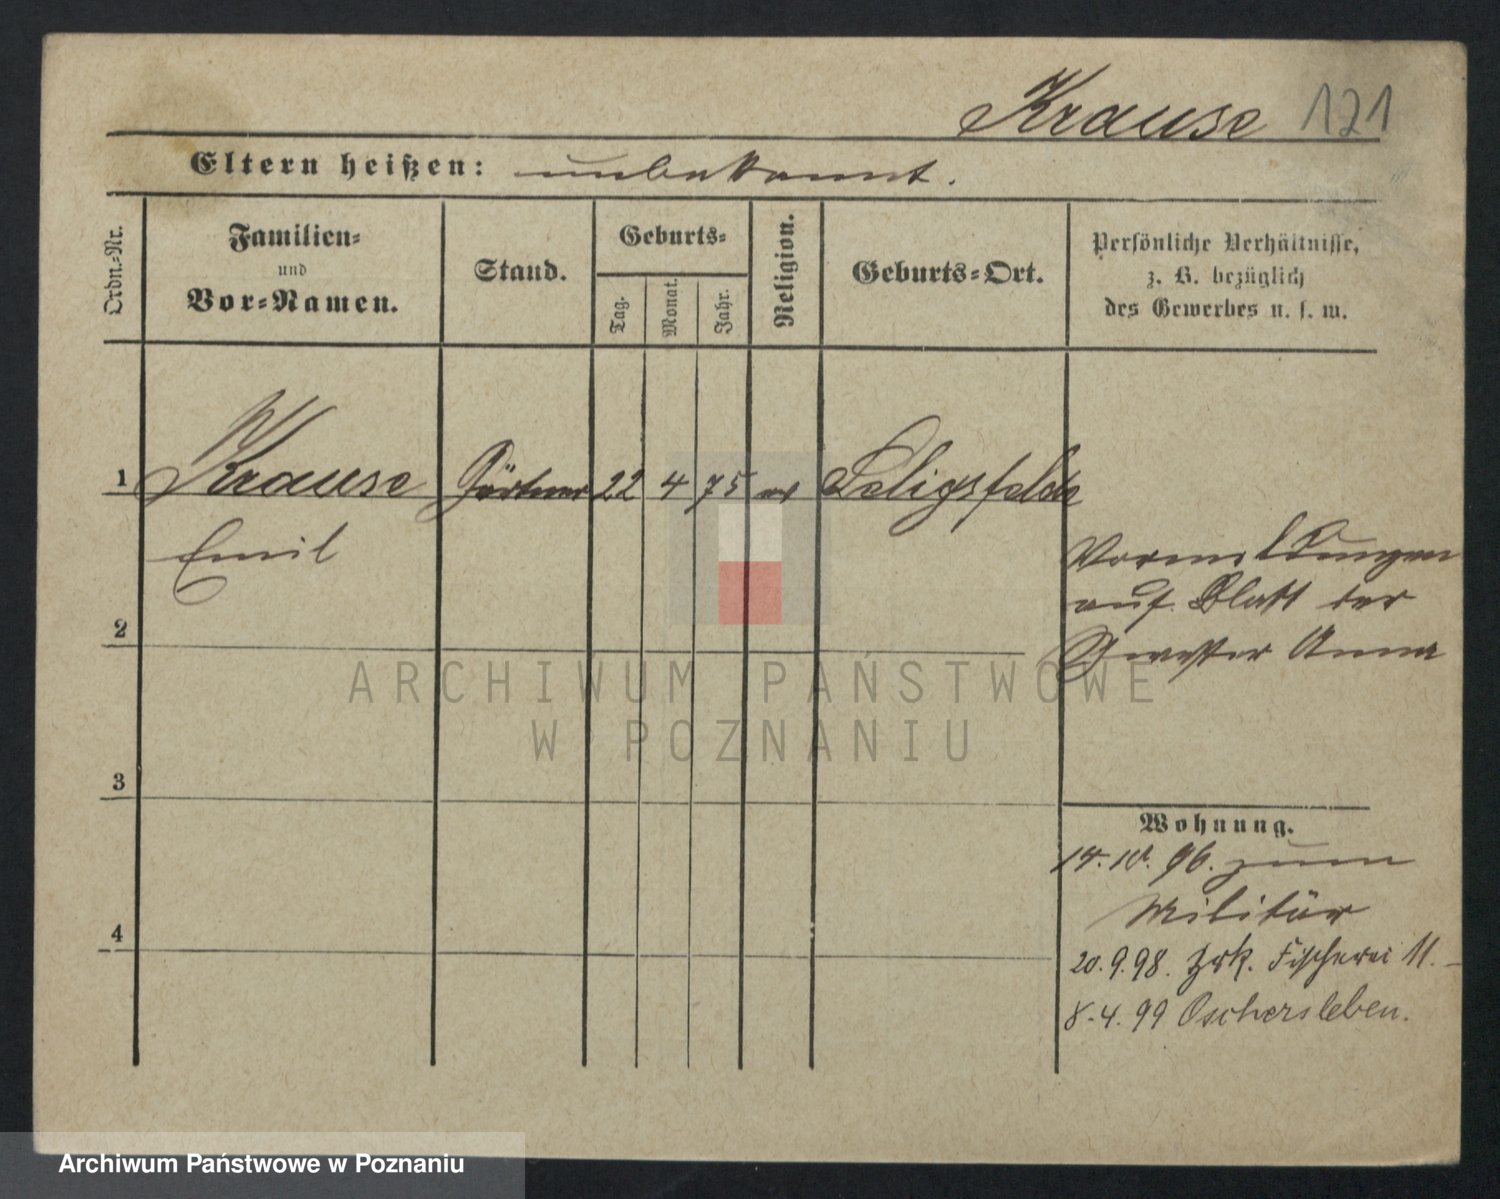 Krause 121
Eltern heißen: unbekannt.
Ordn.-Nr.
Familien-
und
Vor-Namen.
Stand.
Geburts-
Tag.
Monat.
Jahr.
Religion.
Geburts-Ort.
Persönliche Verhältnisse,
z. B. bezüglich
des Gewerbes u. s. w.
1 Krause Gärtner 22 4 75 ev Seligsfelde
Emil
Vormeldungen
auf Blatt der
Schwester Anna
2
3
4
Wohnung.
14.10.96. zum
Militär
20.9.98. Zrk. Fischerei 11.
8.4.99 Oschersleben.
ARCHIWUM PAŃSTWOWE
W POZNANIU
Archiwum Państwowe w Poznaniu